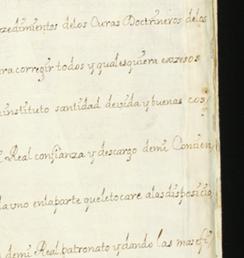 zedimientos de los Curas Doctrineros de los
ra corregir todos y qualesquiera exzesos
instituto santidad devida y buenas cos
Real confianza y descargo de mi Conçien
da uno en la parte que le tocare a las disposiçio
de mi Real patronato y dando las mas efi